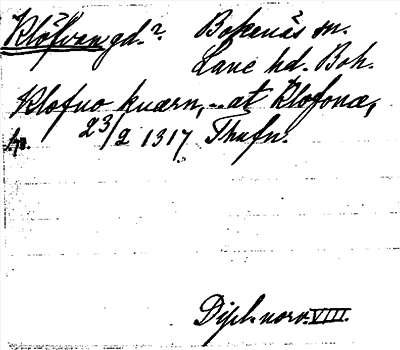 Klöfvan gd.? Bokenäs sn.
Lane hd. Boh.
Klofuo kuærn, .. at Klofona,
23/2 1317 Thufn.
Dipl. norv. VIII.